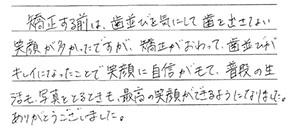 矯正する前は、歯並びを気にして歯を出さない
笑顔が多かったですが、矯正がおわって、歯並びが
キレイになったことで笑顔に自信がもて、普段の生
活も、写真をとるときも、最高の笑顔ができるようになりました。
ありがとうございました。